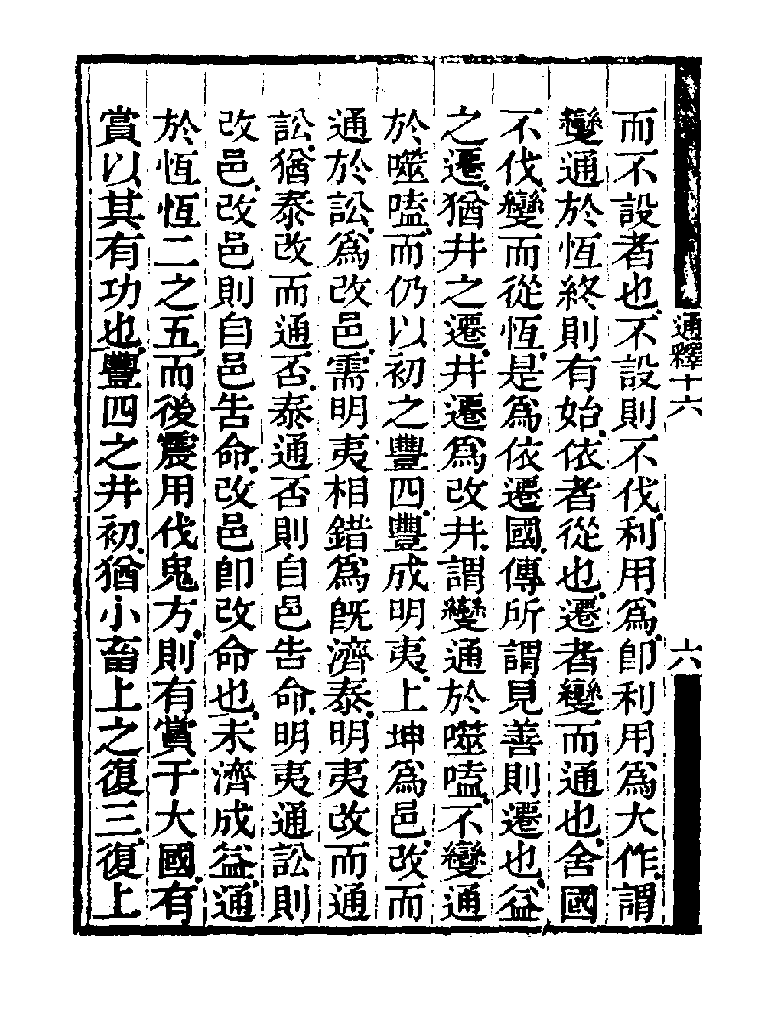 通釋十六
六
而不設者也不設則不伐利用爲卽利用爲大作謂
變通於恆終則有始依者從也遷者變而通也舍國
不伐變而從恆是爲依遷國傳所謂見善則遷也益
之遷猶井之遷井遷爲改井謂變通於噬嗑不變通
於噬嗑而仍以初之豐四豐成明夷上坤爲邑改而
通於訟爲改邑需明夷相錯爲旣濟泰明夷改而通
訟猶泰改而通否泰通否則自邑告命明夷通訟則
改邑改邑則自邑告命改邑卽改命也未濟成益通
於恆恆二之五而後震用伐鬼方則有賞于大國有
賞以其有功也豐四之井初猶小畜上之復三復上